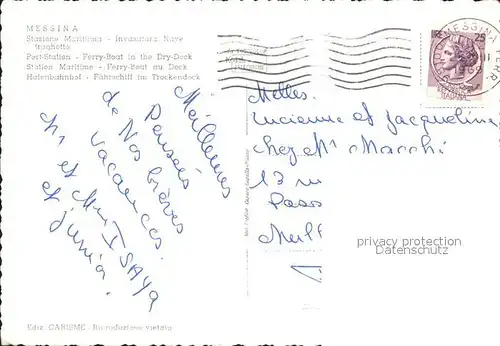 MESSINA
Stazione Marittima - Invasatura Nave
traghetto
Port-Station - Ferry-Boat in the Dry-Dock
Station Maritime - Ferry-Boat au Dock
Hafenbahnhof - Fährschiff im Trockendock
MESSINA
25
Meilleures
Pensées
de Nos brèves
vacances.
Mr et Mme ISAYA
et junior.
Melles.
Lucienne et Jacqueline
chez Mr Macchi
13
Pass
Mulh
privacy protection
Datenschutz
Ediz. GARISME - Riproduzione vietata